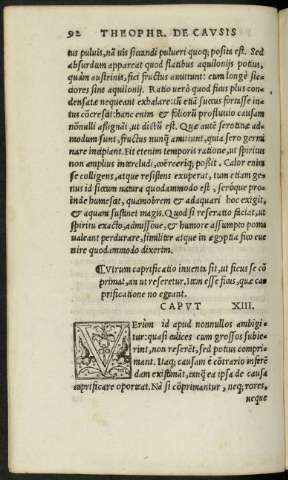 92 THEOPHR. DE CAVSIS
tus puluis, nã uis siccandi pulueri quoq; posita est. Sed
absurdum appareat quod flatibus aquilonijs potius,
quàm austrinis, fici fructus amittunt: cum longè sic-
ciores sint aquilonij. Ratio uerò quod fici plus con-
densatæ nequeant exhalare: illi etiã succus fortasse in-
tus cöercesat: hanc enim & foliorũ profluuio causam
nõnulli aßignãt, ut dictũ est. Quæ autẽ serotinæ ad-
modum sunt, fructus nunq̃ amittunt, quia sero germi-
nare incipiant. Fit etenim temporis ratione, ut spiritus
non amplius intercludi, cöerceriq; poßit. Calor enim
se colligens, atque resistens exuperat, tum etiam ge-
nus id siccum natura quodammodo est, seróque pro-
inde humescat, quamobrem & adæquari hoc exigit,
& aquam sustinet magis. Quod si reseratio faciat, ut
spiritu exacto, admissoue, & humore assumpto poma
ualeant perdurare, similiter atque in ægyptia fico eue
nire quodammodo dixerim.
¶ Vtrum caprificatio inuenta sit, ut ficus se cõ
primat, an ut reseretur. Item esse ficus, quæ ca-
prificatione no egeant.
CAPVT XIII.
VErùm id apud nonnullos ambigi-
tur: quasi culices cum grossos subie-
rint, non reserẽt, sed potius compri-
mant. Itaq; causam è cõtrario inferẽ
dam existimãt, tanq̃ ea ipsa de causa
caprificare oporteat. Nã si cõprimantur, neq; rores,
neque